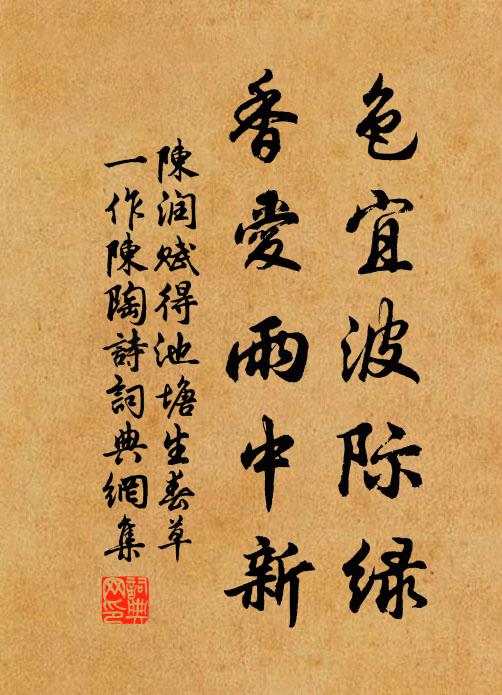 色宜波际绿
香愛雨中新
陳润赋得池塘生春草
一作陳陶詩詞典網集
詞典网印